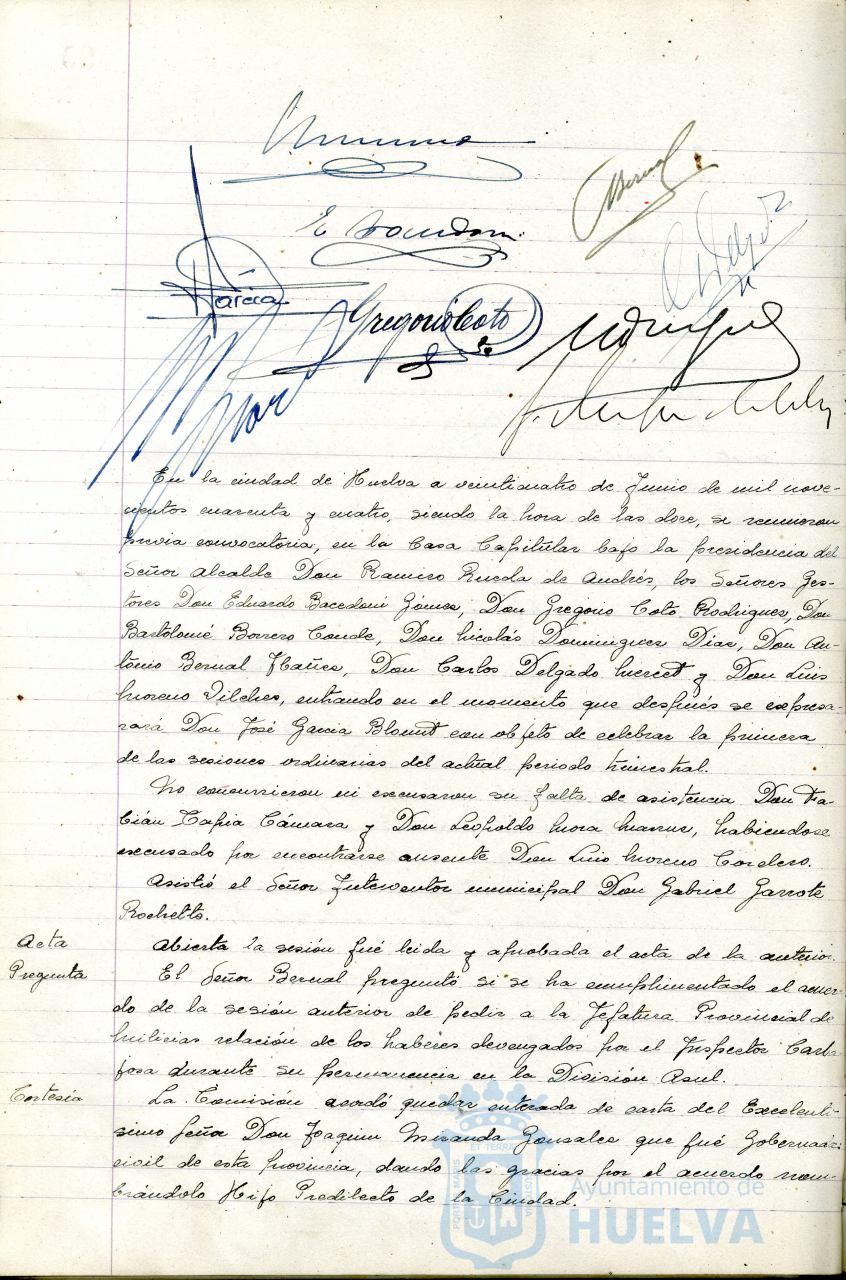 E Bacedoni
Bernal
García
Gregorio Coto
En la ciudad de Huelva a veinticuatro de Junio de mil nove-
cientos cuarenta y cuatro, siendo la hora de las doce, se reunieron
previa convocatoria, en la Casa Capitular bajo la presidencia del
Señor Alcalde Don Ramiro Rueda de Andrés, los Señores Ges-
tores Don Eduardo Bacedoni Gómez, Don Gregorio Coto Rodriguez, Don
Bartolomé Borrero Conde, Don Nicolás Dominguez Diaz, Don An-
tonio Bernal Ibañez, Don Carlos Delgado y Don Luis
Moreno Vilches, entrando en el momento que después se expresa-
rará Don José Garcia Blount con objeto de celebrar la primera
de las sesiones ordinarias del actual periodo trimestral.
No concurrieron ni excusaron su falta de asistencia Don Fa-
bián Tapia Cámara y Don Leopoldo Mora, habiendose
excusado por encontrarse ausente Don Luis Moreno Cordero.
Asistió el Señor Interventor municipal Don Gabriel Garrote
Rochetto.
Acta
Abierta la sesión fué leida y aprobada el acta de la anterior.
Pregunta
El Señor Bernal preguntó si se ha cumplimentado el acuer-
do de la sesión anterior de pedir a la Jefatura Provincial de
Milicias relación de los haberes devengados por el Inspector
durante su permanencia en la División Asul.
Cortesía
La Comisión acordó quedar enterada de carta del Excelentí-
simo Señor Don Joaquin Miranda Gonzalez que fué Gobernador
civil de esta provincia, dando las gracias por el acuerdo nom-
brándolo Hijo Predilecto de la Ciudad.
Ayuntamiento de
HUELVA